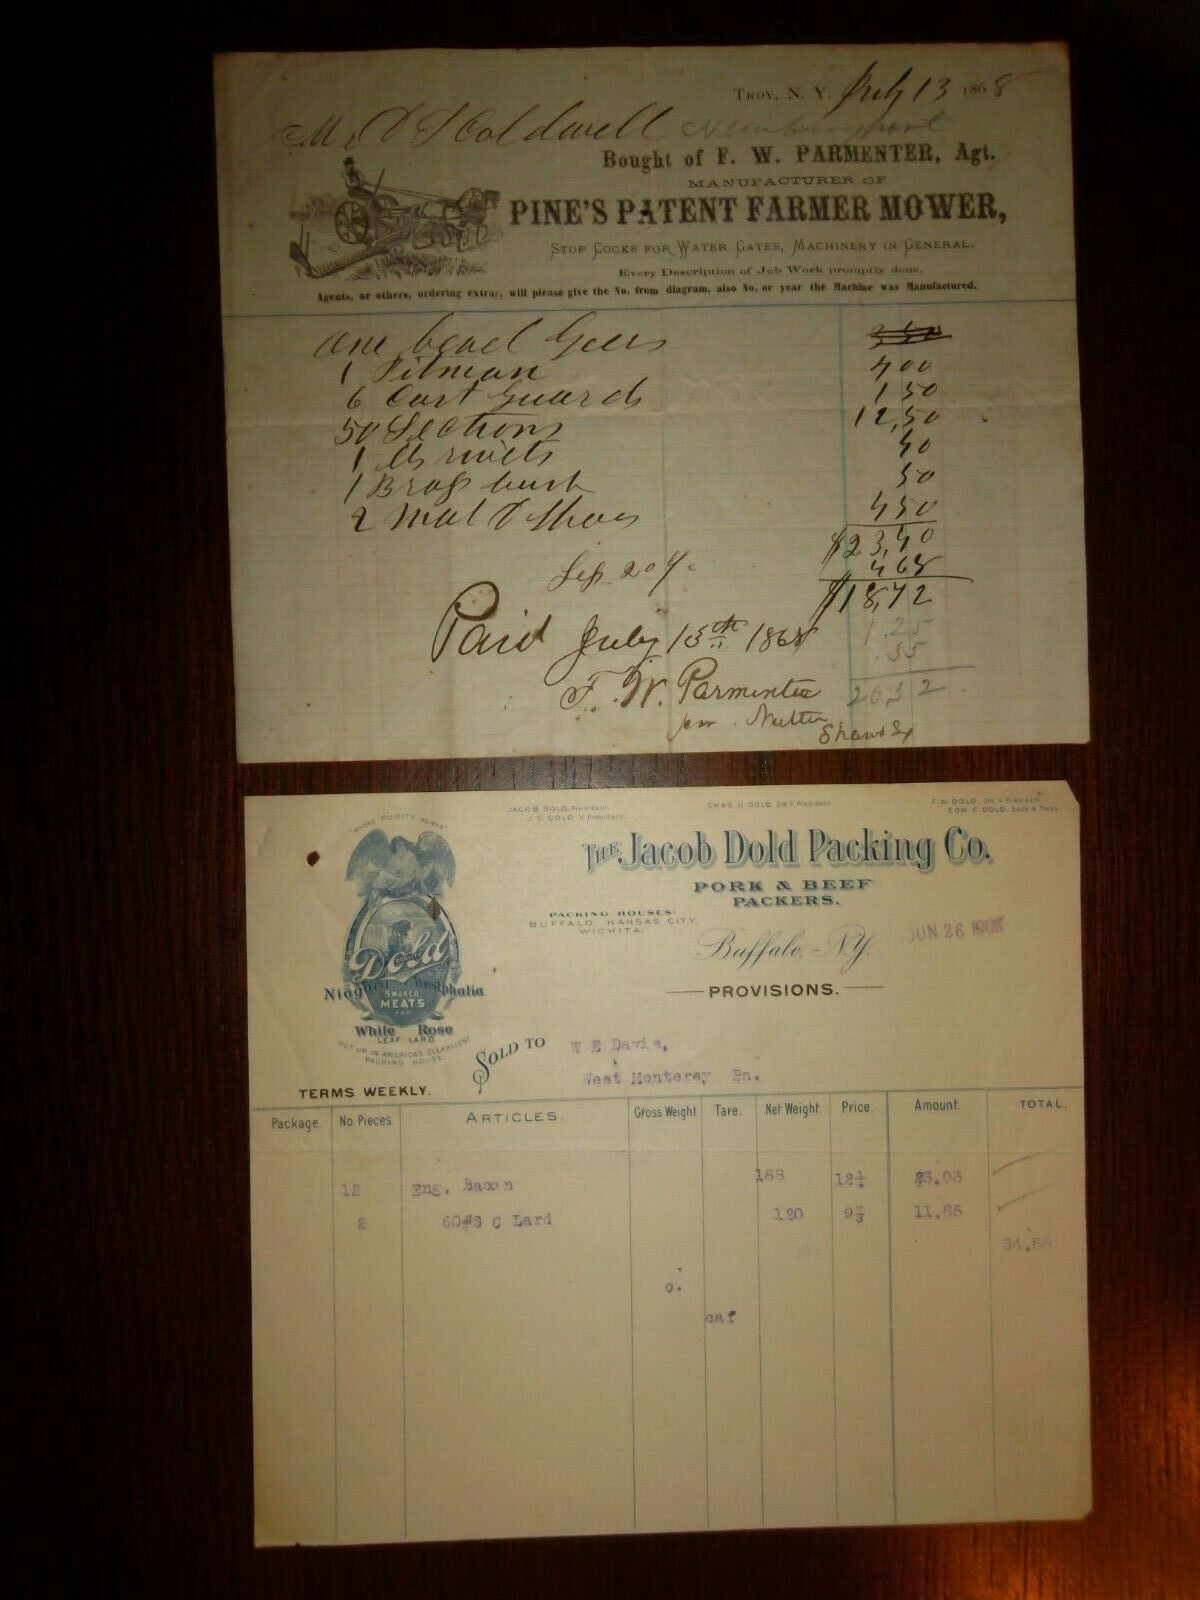 Troy, N. Y. July 13 1868
Mr D S Coldwell Newburyport
Bought of F. W. PARMENTER, Agt.
MANUFACTURER OF
PINE'S PATENT FARMER MOWER,
Stop Cocks for Water Gates, Machinery in General.
Every Description of Job Work promptly done.
Agents, or others, ordering extras, will please give the No. from diagram, also No. or year the Machine was Manufactured.
One bevel Geer 350
1 Pitman 4 00
6 Cast Guards 1 50
50 Sections 12,50
1 lb rivets 40
1 Brass bush 50
2 Shoes 4 50
$23,40
Less 20 % 4 68
$18,72
Paid July 15th 1868 1.25
.35
F. W. Parmenter 20 32
per Nutter
JACOB DOLD, President
J. C. DOLD, V. President
CHAS. H. DOLD, 2nd V. President
F. W. DOLD, 3rd V. President
EDW. F. DOLD, Secy & Treas
"WHERE PURITY REIGNS"
THE Jacob Dold Packing Co.
PORK & BEEF
PACKERS.
PACKING HOUSES:
BUFFALO, KANSAS CITY,
WICHITA.
Buffalo, N.Y. JUN 26 1906
PROVISIONS.
Dold
Niagara Westphalia
SMOKED
MEATS
AND
White Rose
LEAF LARD
PUT UP IN AMERICA'S CLEANLIEST
PACKING HOUSE
SOLD TO W E Davis,
West Monterey Pa.
TERMS WEEKLY.
Package. No. Pieces. ARTICLES. Gross Weight. Tare. Net Weight. Price. Amount. TOTAL.
12 Eng. Bacon 188 12¼ 23.03
2 60#S C Lard 120 9⅞ 11.85
34.88
o.
caf